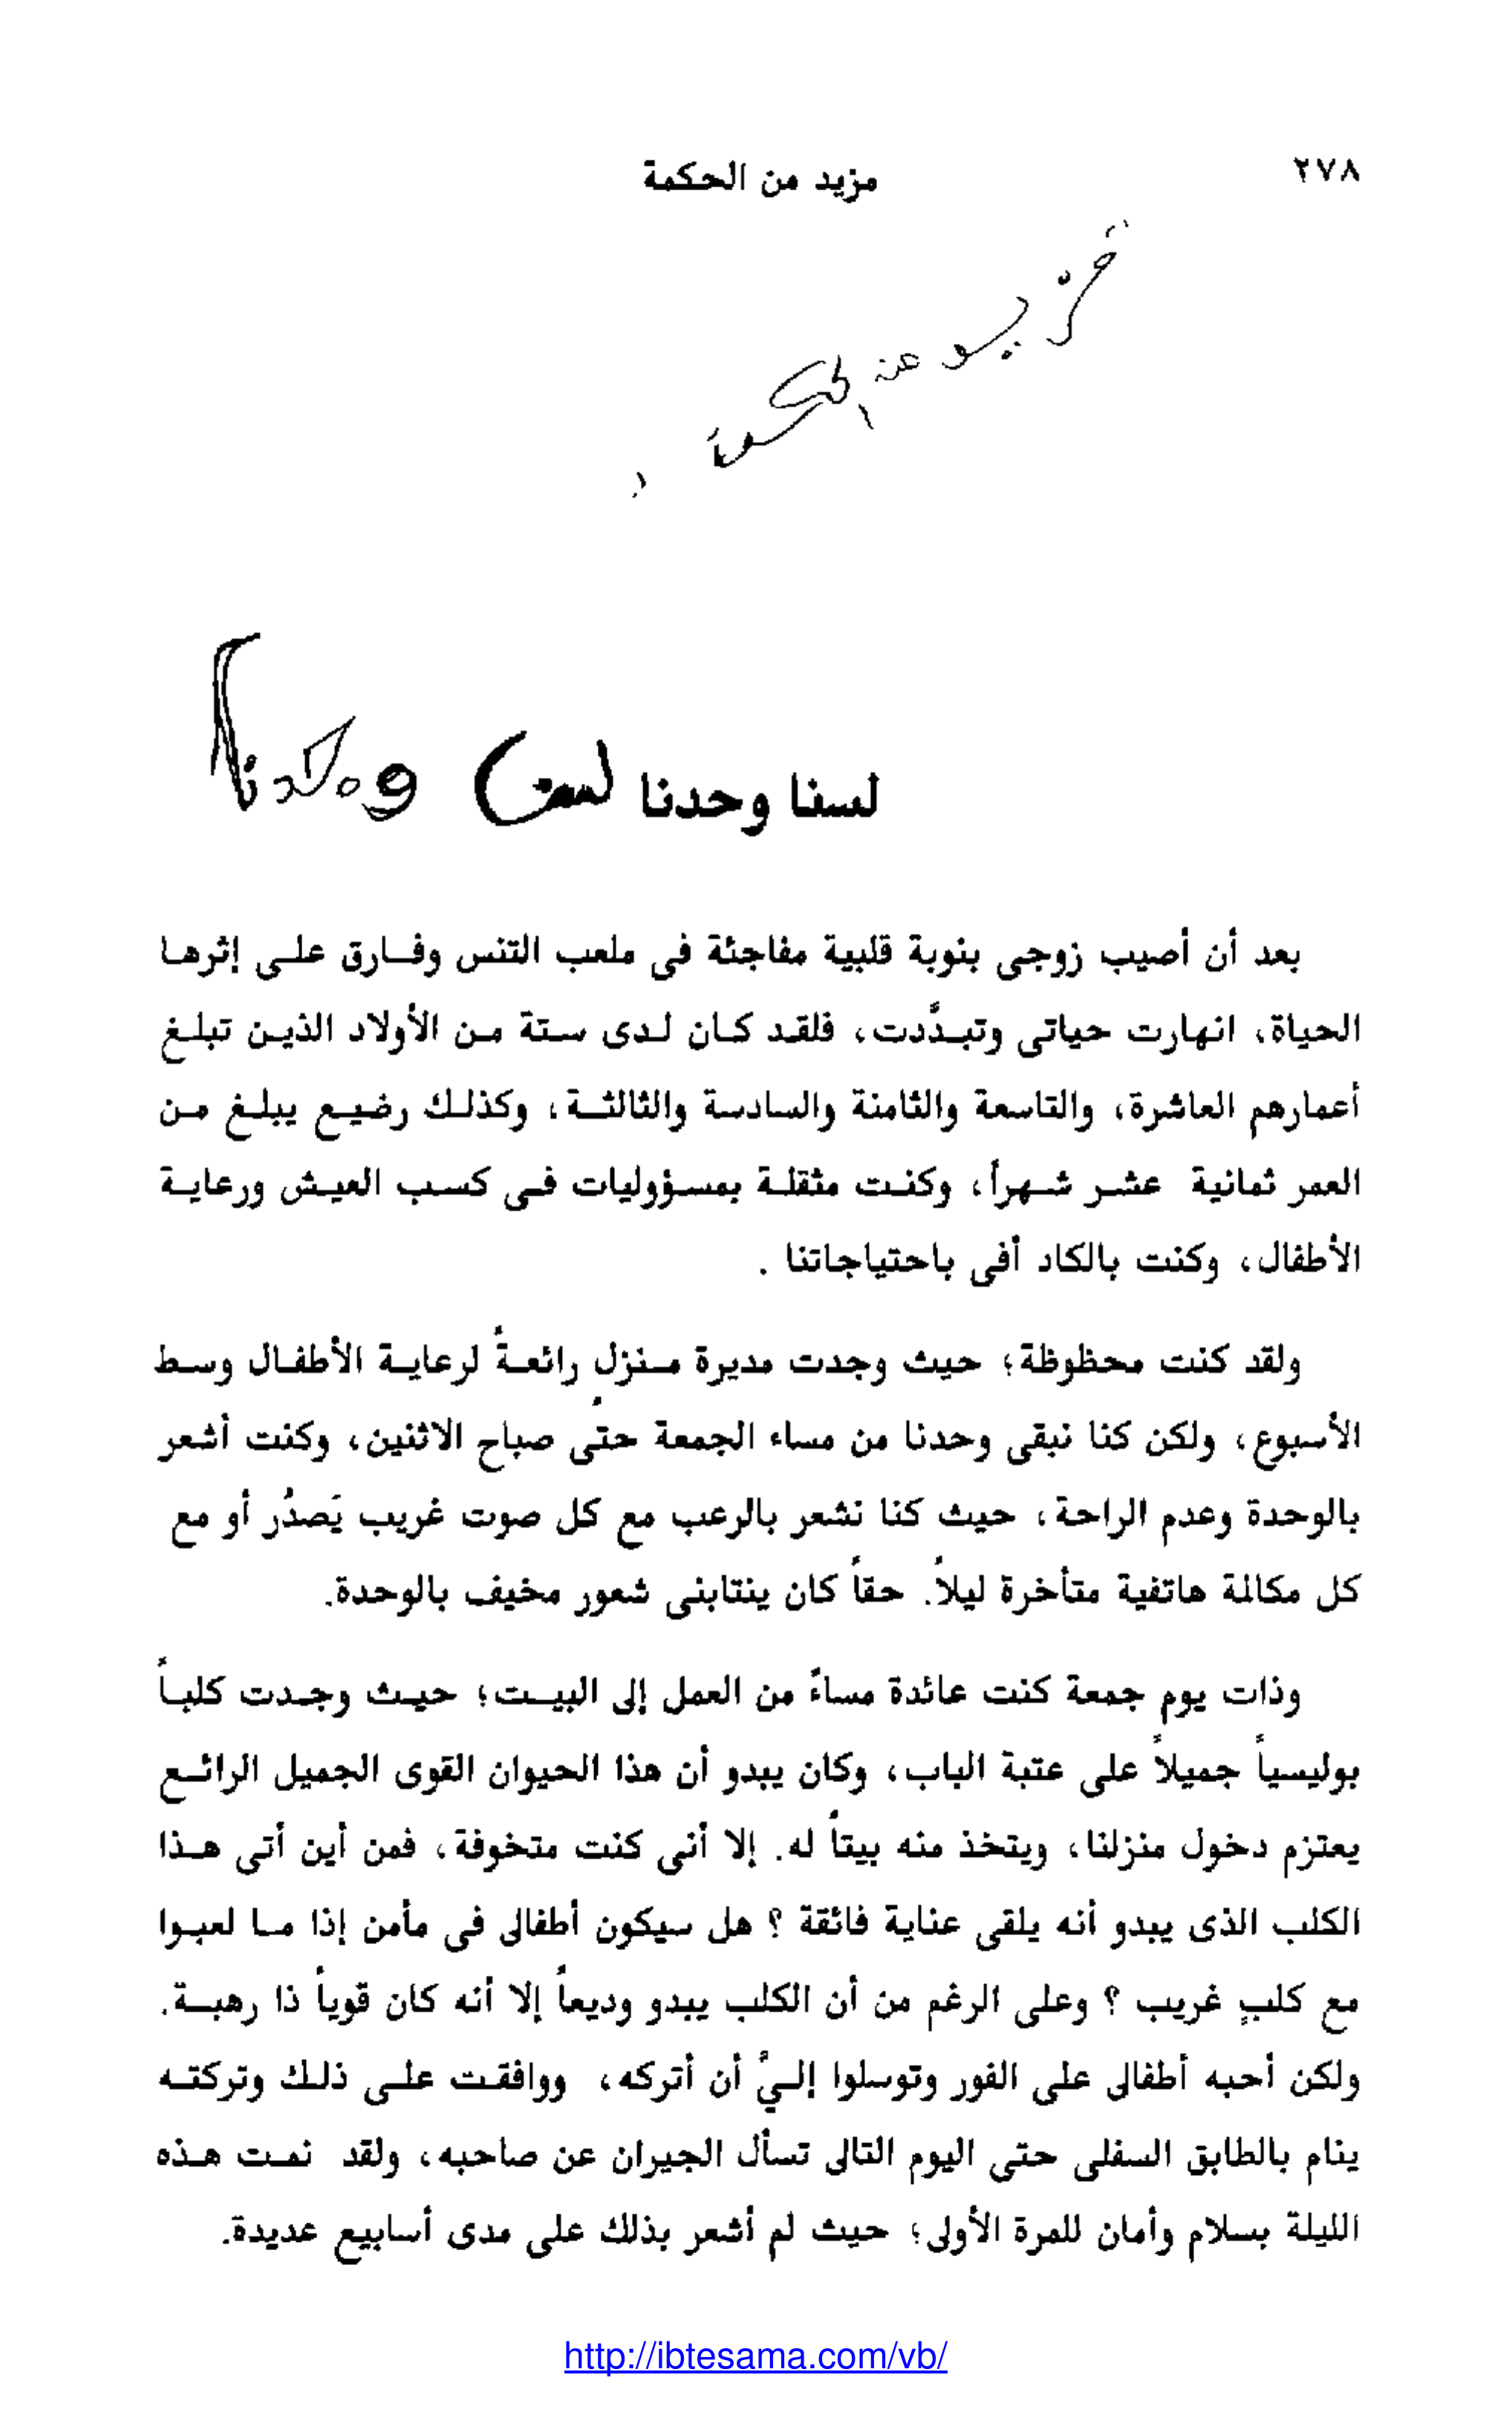 ٢٧٨
مزيد من الحكمة
مزيد من الحكمة
لسنا وحدنا
بعد أن أصيب زوجى بنوبة قلبية مفاجئة فى ملعب التنس وفـارق علـى إثرهـا
الحياة، انهارت حياتى وتبـدَّدت، فلقـد كـان لـدى سـتة مـن الأولاد الذيـن تبلـغ
أعمارهم العاشرة، والتاسعة والثامنة والسادسة والثالثـة، وكذلـك رضيـع يبلـغ مـن
العمر ثمانية عشـر شـهراً، وكنـت مثقلـة بمسـؤوليات فـى كسـب العيـش ورعايـة
الأطفال، وكنت بالكاد أفى باحتياجاتنا .
ولقد كنت محظوظة؛ حيث وجدت مديرة مـنزل رائعـةً لرعايـة الأطفـال وسـط
الأسبوع، ولكن كنا نبقى وحدنا من مساء الجمعة حتى صباح الاثنين، وكنت أشعر
بالوحدة وعدم الراحة، حيث كنا نشعر بالرعب مع كل صوت غريب يَصدُر أو مع
كل مكالمة هاتفية متأخرة ليلاً. حقاً كان ينتابنى شعور مخيف بالوحدة.
وذات يوم جمعة كنت عائدة مساءً من العمل إلى البيـت؛ حيـث وجـدت كلبـاً
بوليسياً جميلاً على عتبة الباب، وكان يبدو أن هذا الحيوان القوى الجميل الرائـع
يعتزم دخول منزلنا، ويتخذ منه بيتاً له. إلا أنى كنت متخوفة، فمن أين أتى هـذا
الكلب الذى يبدو أنه يلقى عناية فائقة ؟ هل سيكون أطفالى فى مأمن إذا مـا لعبـوا
مع كلبٍ غريب ؟ وعلى الرغم من أن الكلب يبدو وديعاً إلا أنه كان قوياً ذا رهبـة.
ولكن أحبه أطفالى على الفور وتوسلوا إلـيَّ أن أتركه، ووافقـت علـى ذلـك وتركتـه
ينام بالطابق السفلى حتى اليوم التالى نسأل الجيران عن صاحبه، ولقد نمـت هـذه
الليلة بسلام وأمان للمرة الأولى؛ حيث لم أشعر بذلك على مدى أسابيع عديدة.
http://ibtesama.com/vb/